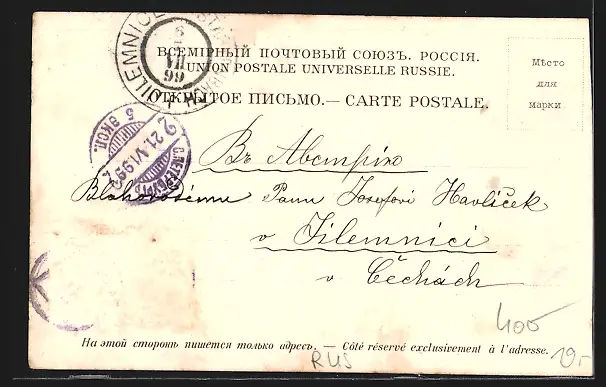 ВСЕМІРНЫЙ ПОЧТОВЫЙ СОЮЗЪ. РОССІЯ.
UNION POSTALE UNIVERSELLE RUSSIE.
ОТКРЫТОЕ ПИСЬМО.— CARTE POSTALE.
Мѣсто
для
марки.
JILEMNICE
99
5 ЭКСП.
2 21.VI.99
С.ПЕТЕРБУРГЪ
Въ Австрію
Blahorodému Panu Josefovi Havlíček
v Jilemnici
v Čechách
На этой сторонѣ пишется только адресъ. — Côté réservé exclusivement à l'adresse.
RUS
400
19.-